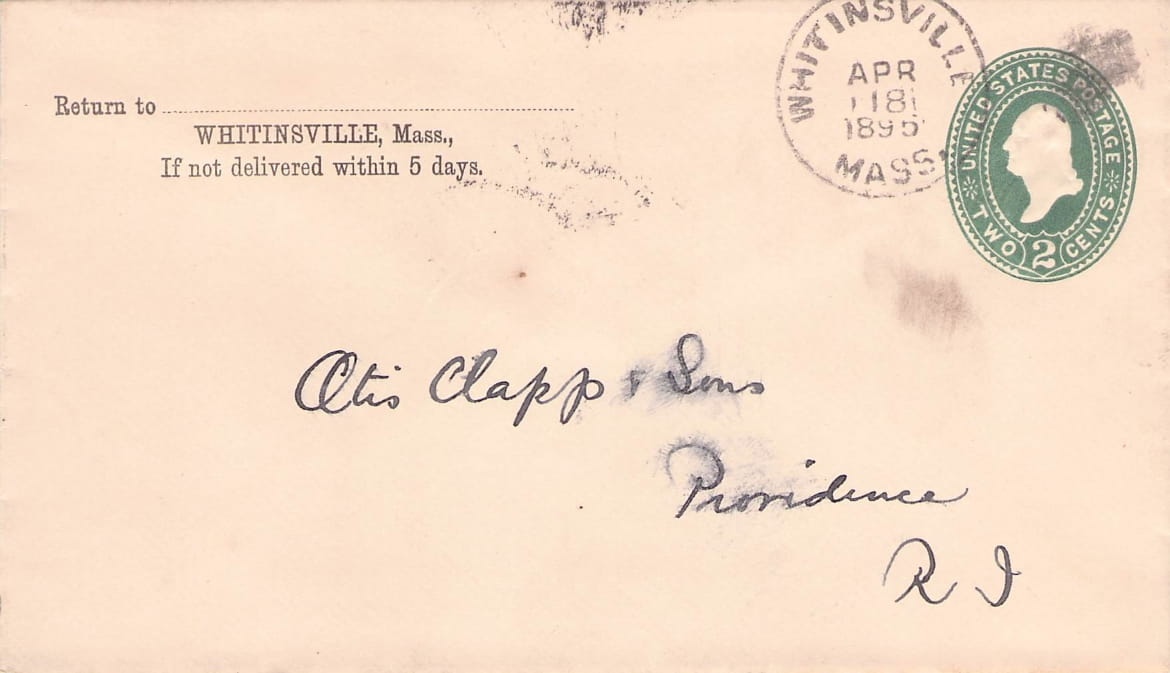 Return to
WHITINSVILLE, Mass.,
If not delivered within 5 days.
WHITINSVILLE
APR
18
1895
MASS.
UNITED STATES POSTAGE
TWO 2 CENTS
Otis Clapp & Sons
Providence
R I